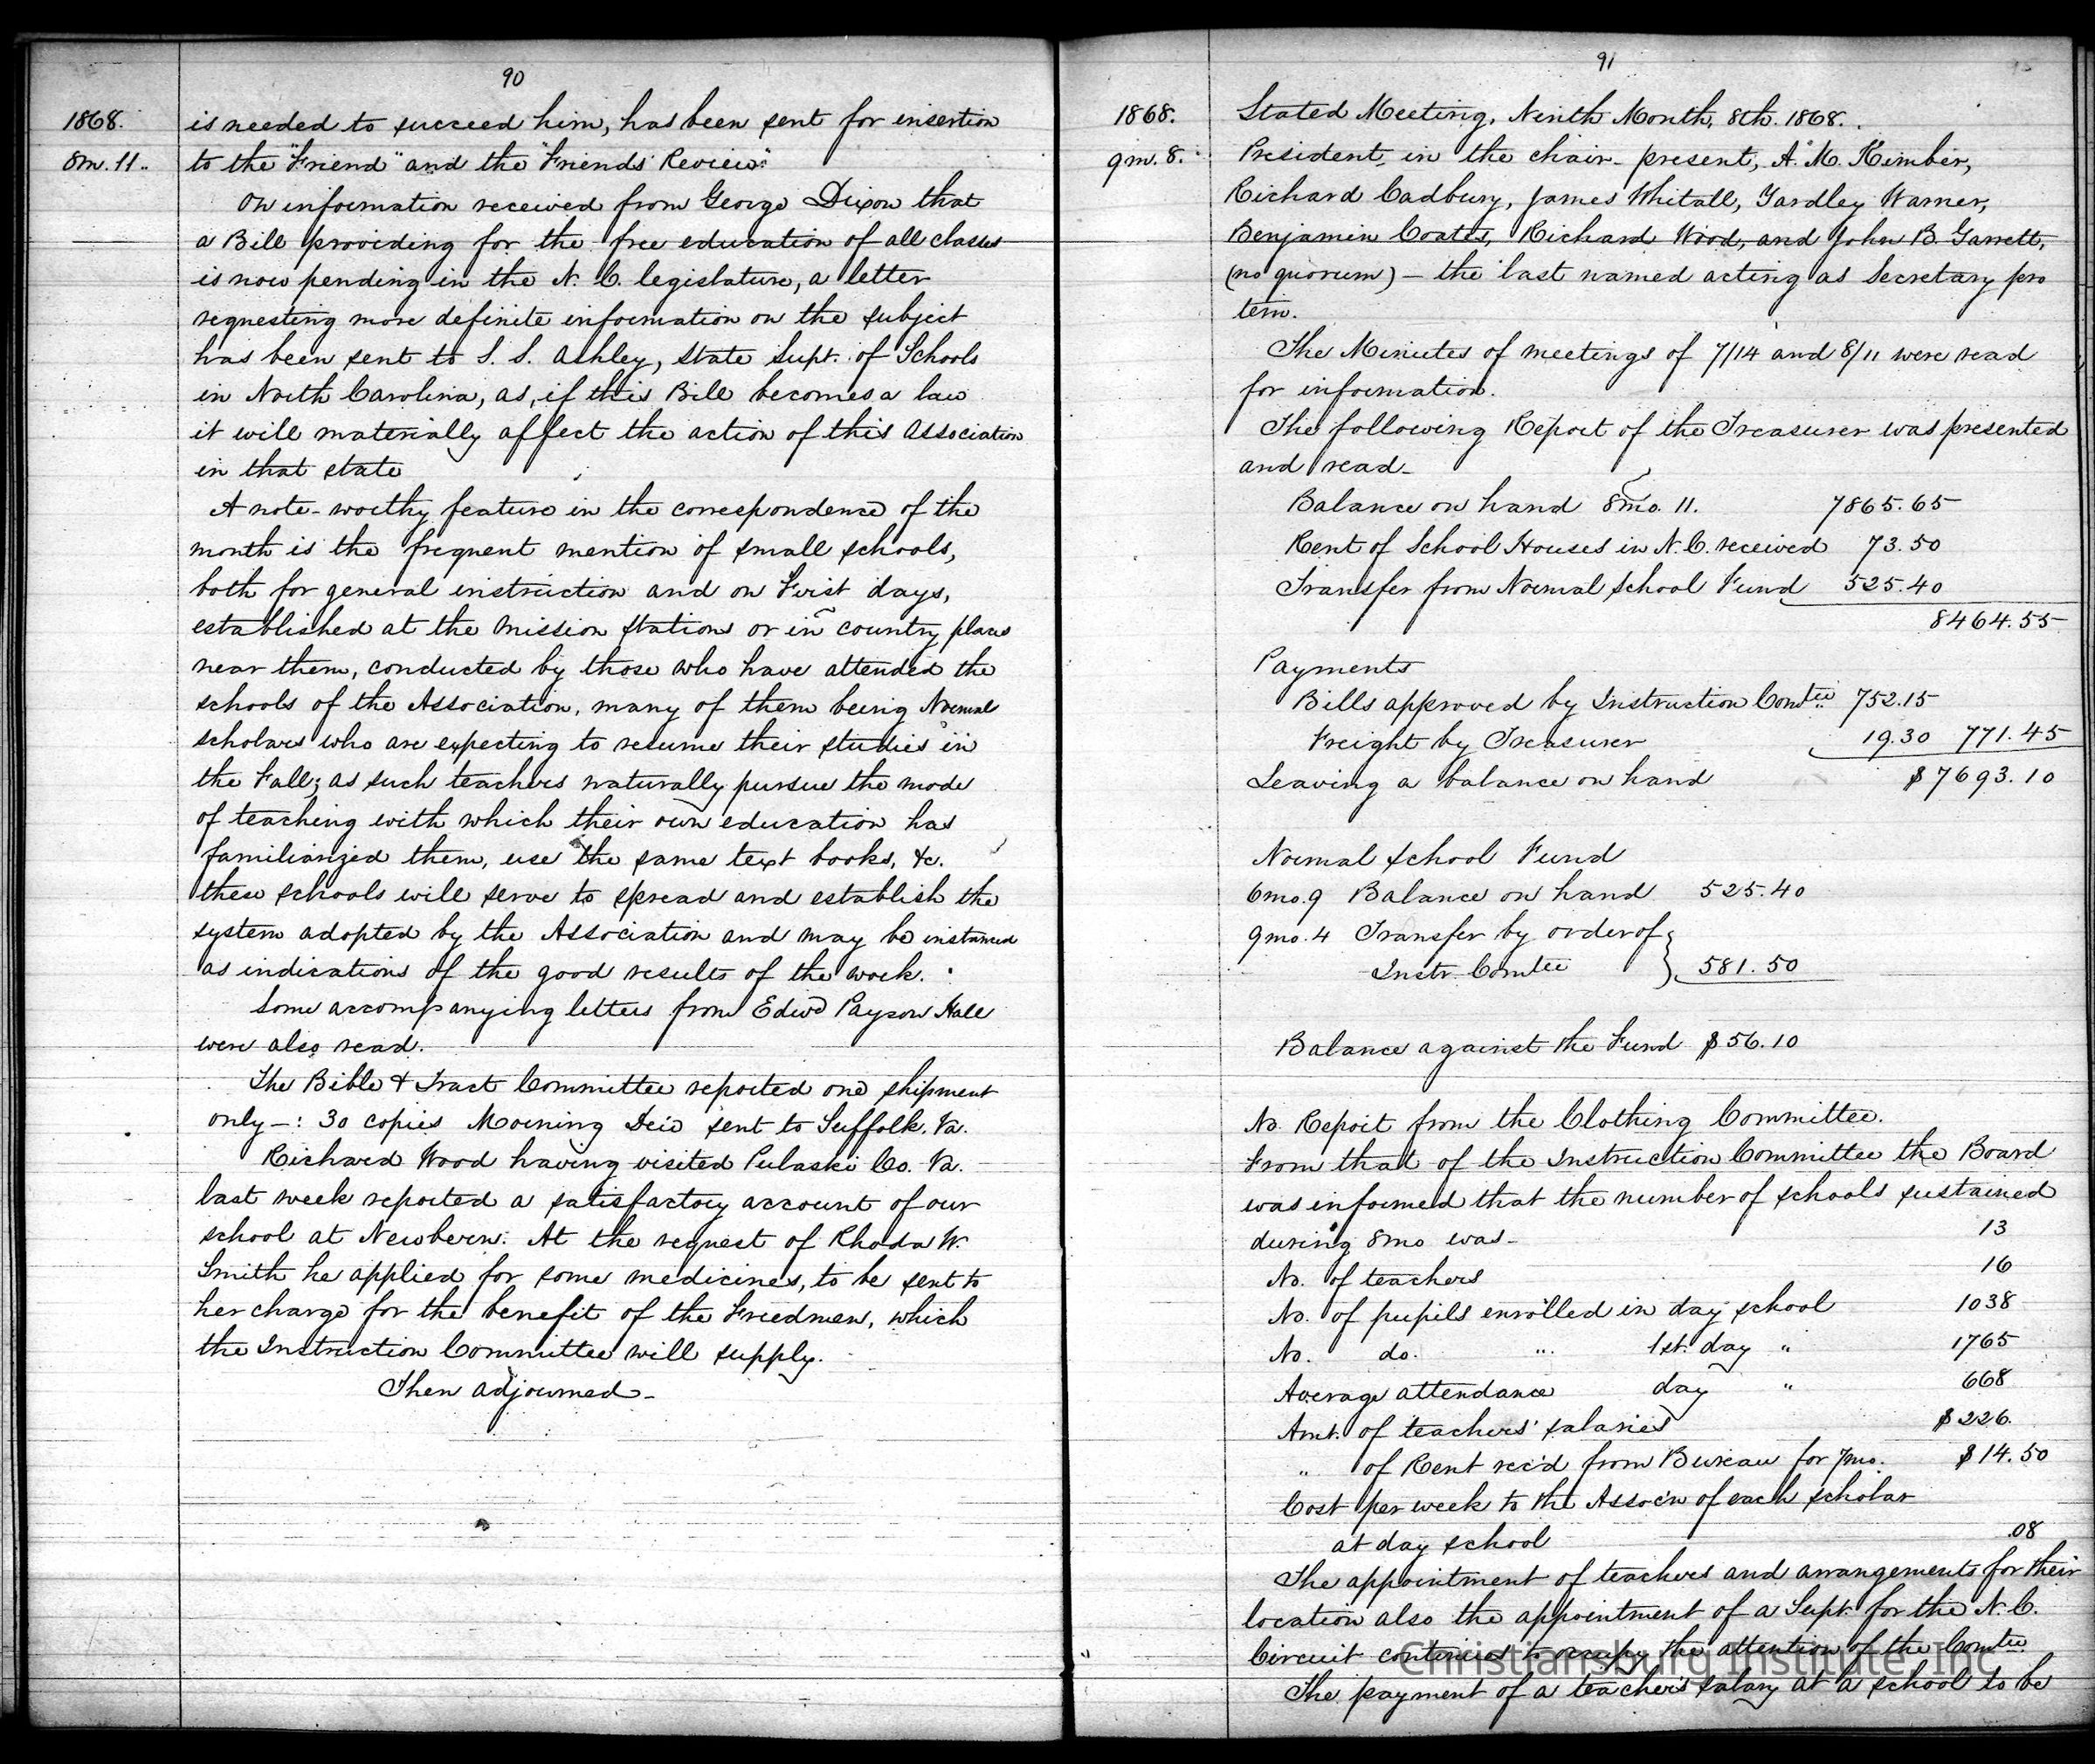 90
1868.
8m. 11.
is needed to succeed him, has been sent for insertion
to the "Friend" and the "Friends' Review."
On information received from George Dixon that
a Bill providing for the free education of all classes
is now pending in the N. C. legislature, a letter
requesting more definite information on the subject
has been sent to S. S. Ashley, State Supt. of Schools
in North Carolina, as, if this Bill becomes a law
it will materially affect the action of this Association
in that state
A note-worthy feature in the correspondence of the
month is the frequent mention of small schools,
both for general instruction and on First days,
established at the Mission Stations or in country places
near them, conducted by those who have attended the
schools of the Association, many of them being Normal
scholars who are expecting to resume their studies in
the Fall; as such teachers naturally pursue the mode
of teaching with which their own education has
familiarized them, use the same text books, &c.
these schools will serve to spread and establish the
system adopted by the Association and may be instanced
as indications of the good results of the work.
Some accompanying letters from Edwd Payson Hall
were also read.
The Bible & Tract Committee reported one shipment
only -: 30 copies Morning Star sent to Suffolk, Va.
Richard Wood having visited Pulaski Co. Va.
last week reported a satisfactory account of our
school at Newbern. At the request of Rhoda W.
Smith he applied for some medicines, to be sent to
her charge for the benefit of the Freedmen, which
the Instruction Committee will supply.
Then adjourned-
91
1868.
9m. 8.
Stated Meeting, Ninth Month, 8th. 1868.
President in the chair - present, A. M. Kimber,
Richard Cadbury, James Whitall, Yardley Warner,
Benjamin Coates, Richard Wood, and John B. Garrett,
(no quorum) - the last named acting as Secretary pro
tem.
The Minutes of meetings of 7/14 and 8/11 were read
for information.
The following Report of the Treasurer was presented
and read-
Balance on hand 8mo. 11. 7865.65
Rent of School Houses in N. C. received 73.50
Transfer from Normal School Fund 525.40
8464.55
Payments
Bills approved by Instruction Comtee 752.15
Freight by Treasurer 19.30 771.45
Leaving a balance on hand $7693.10
Normal School Fund
6mo.9 Balance on hand 525.40
9mo.4 Transfer by order of
Instr. Comtee } 581.50
Balance against the Fund $56.10
No Report from the Clothing Committee.
From that of the Instruction Committee the Board
was informed that the number of schools sustained
during 8mo was- 13
No. of teachers 16
No. of pupils enrolled in day school 1038
No. do. " 1st. day " 1765
Average attendance day " 668
Amt. of teachers' salaries $226.
" of Rent rec'd from Bureau for 7mo. $14.50
Cost per week to the Assoc'n of each scholar
at day school .08
The appointment of teachers and arrangements for their
location also the appointment of a Supt. for the N. C.
Circuit continues to occupy the attention of the Comtee
The payment of a teacher's salary at a school to be
Christiansburg Institute, Inc